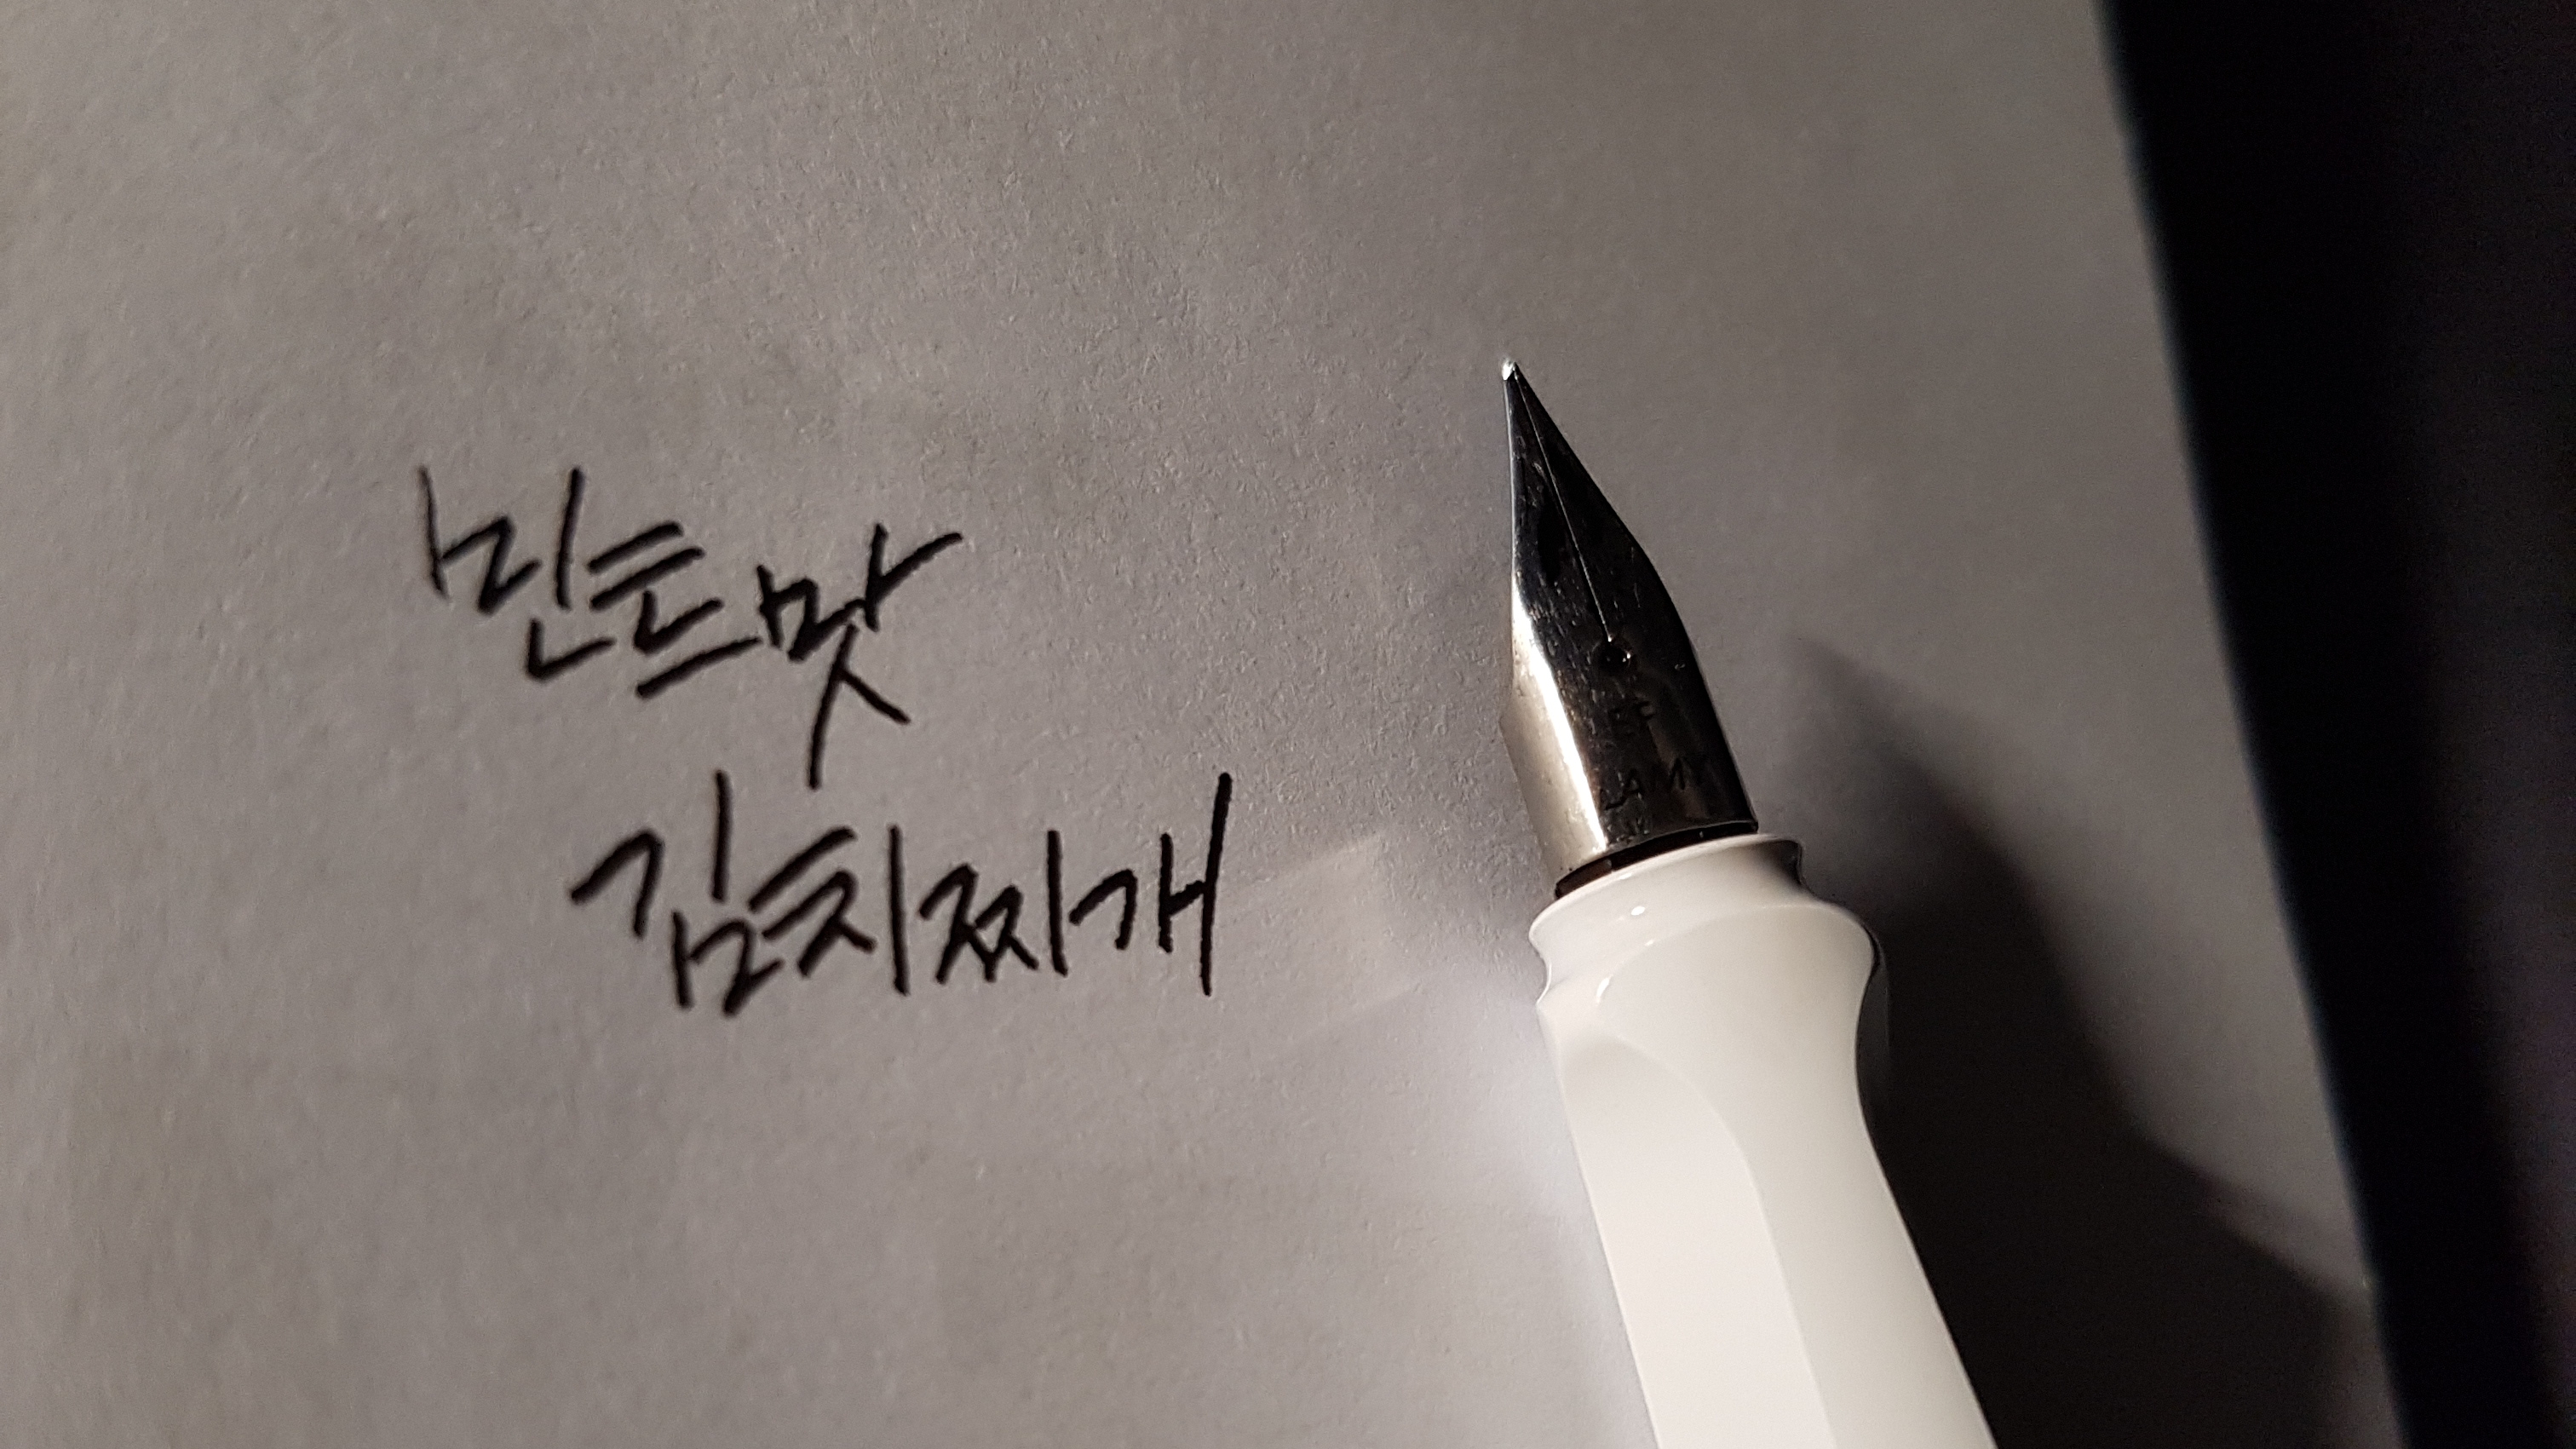 민트맛
김치찌개
EF
LAMY